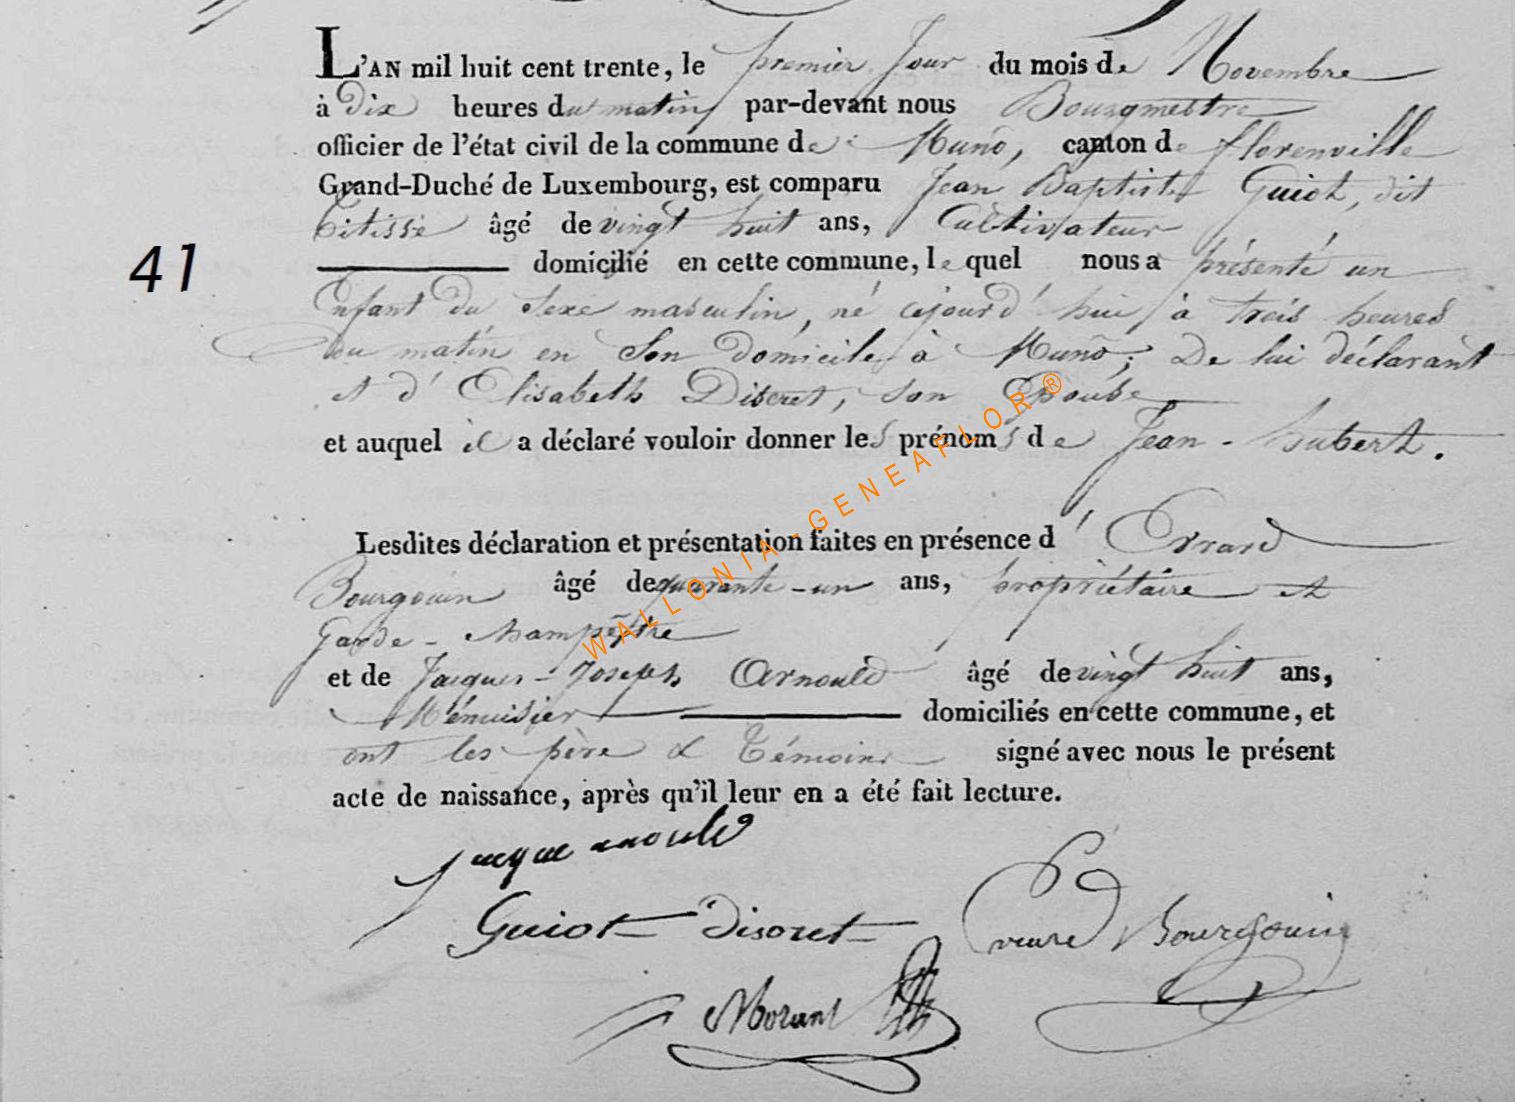 L'AN mil huit cent trente, le premier Jour du mois de Novembre
à Dix heures du matin par-devant nous Bourgmestre
officier de l'état civil de la commune de Muno, canton de florenville
Grand-Duché de Luxembourg, est comparu Jean Baptiste Guiot, dit
Titisse âgé de vingt huit ans, Cultivateur
41
domicilié en cette commune, le quel nous a présenté un
Enfant du Sexe masculin, né cejourd'hui à trois heures
du matin en Son domicile à Muno; De lui déclarant
et d'Elisabeth Discret, son Epouse
et auquel il a déclaré vouloir donner les prénoms de Jean-hubert.
Lesdites déclaration et présentation faites en présence d'Evrard
Bourgouin âgé de quarante-un ans, propriétaire et
Garde-champêtre
et de Jacques-Joseph Arnould âgé de vingt huit ans,
Ménuisier domiciliés en cette commune, et
ont les père & Témoins signé avec nous le présent
acte de naissance, après qu'il leur en a été fait lecture.
Guiot Discret
Bourgouin
Morant
WALLONIA-GENEAFLOR®